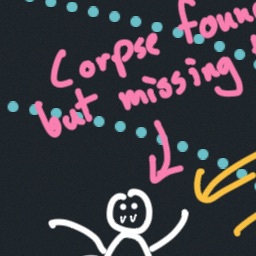 Corpse foun
but missing